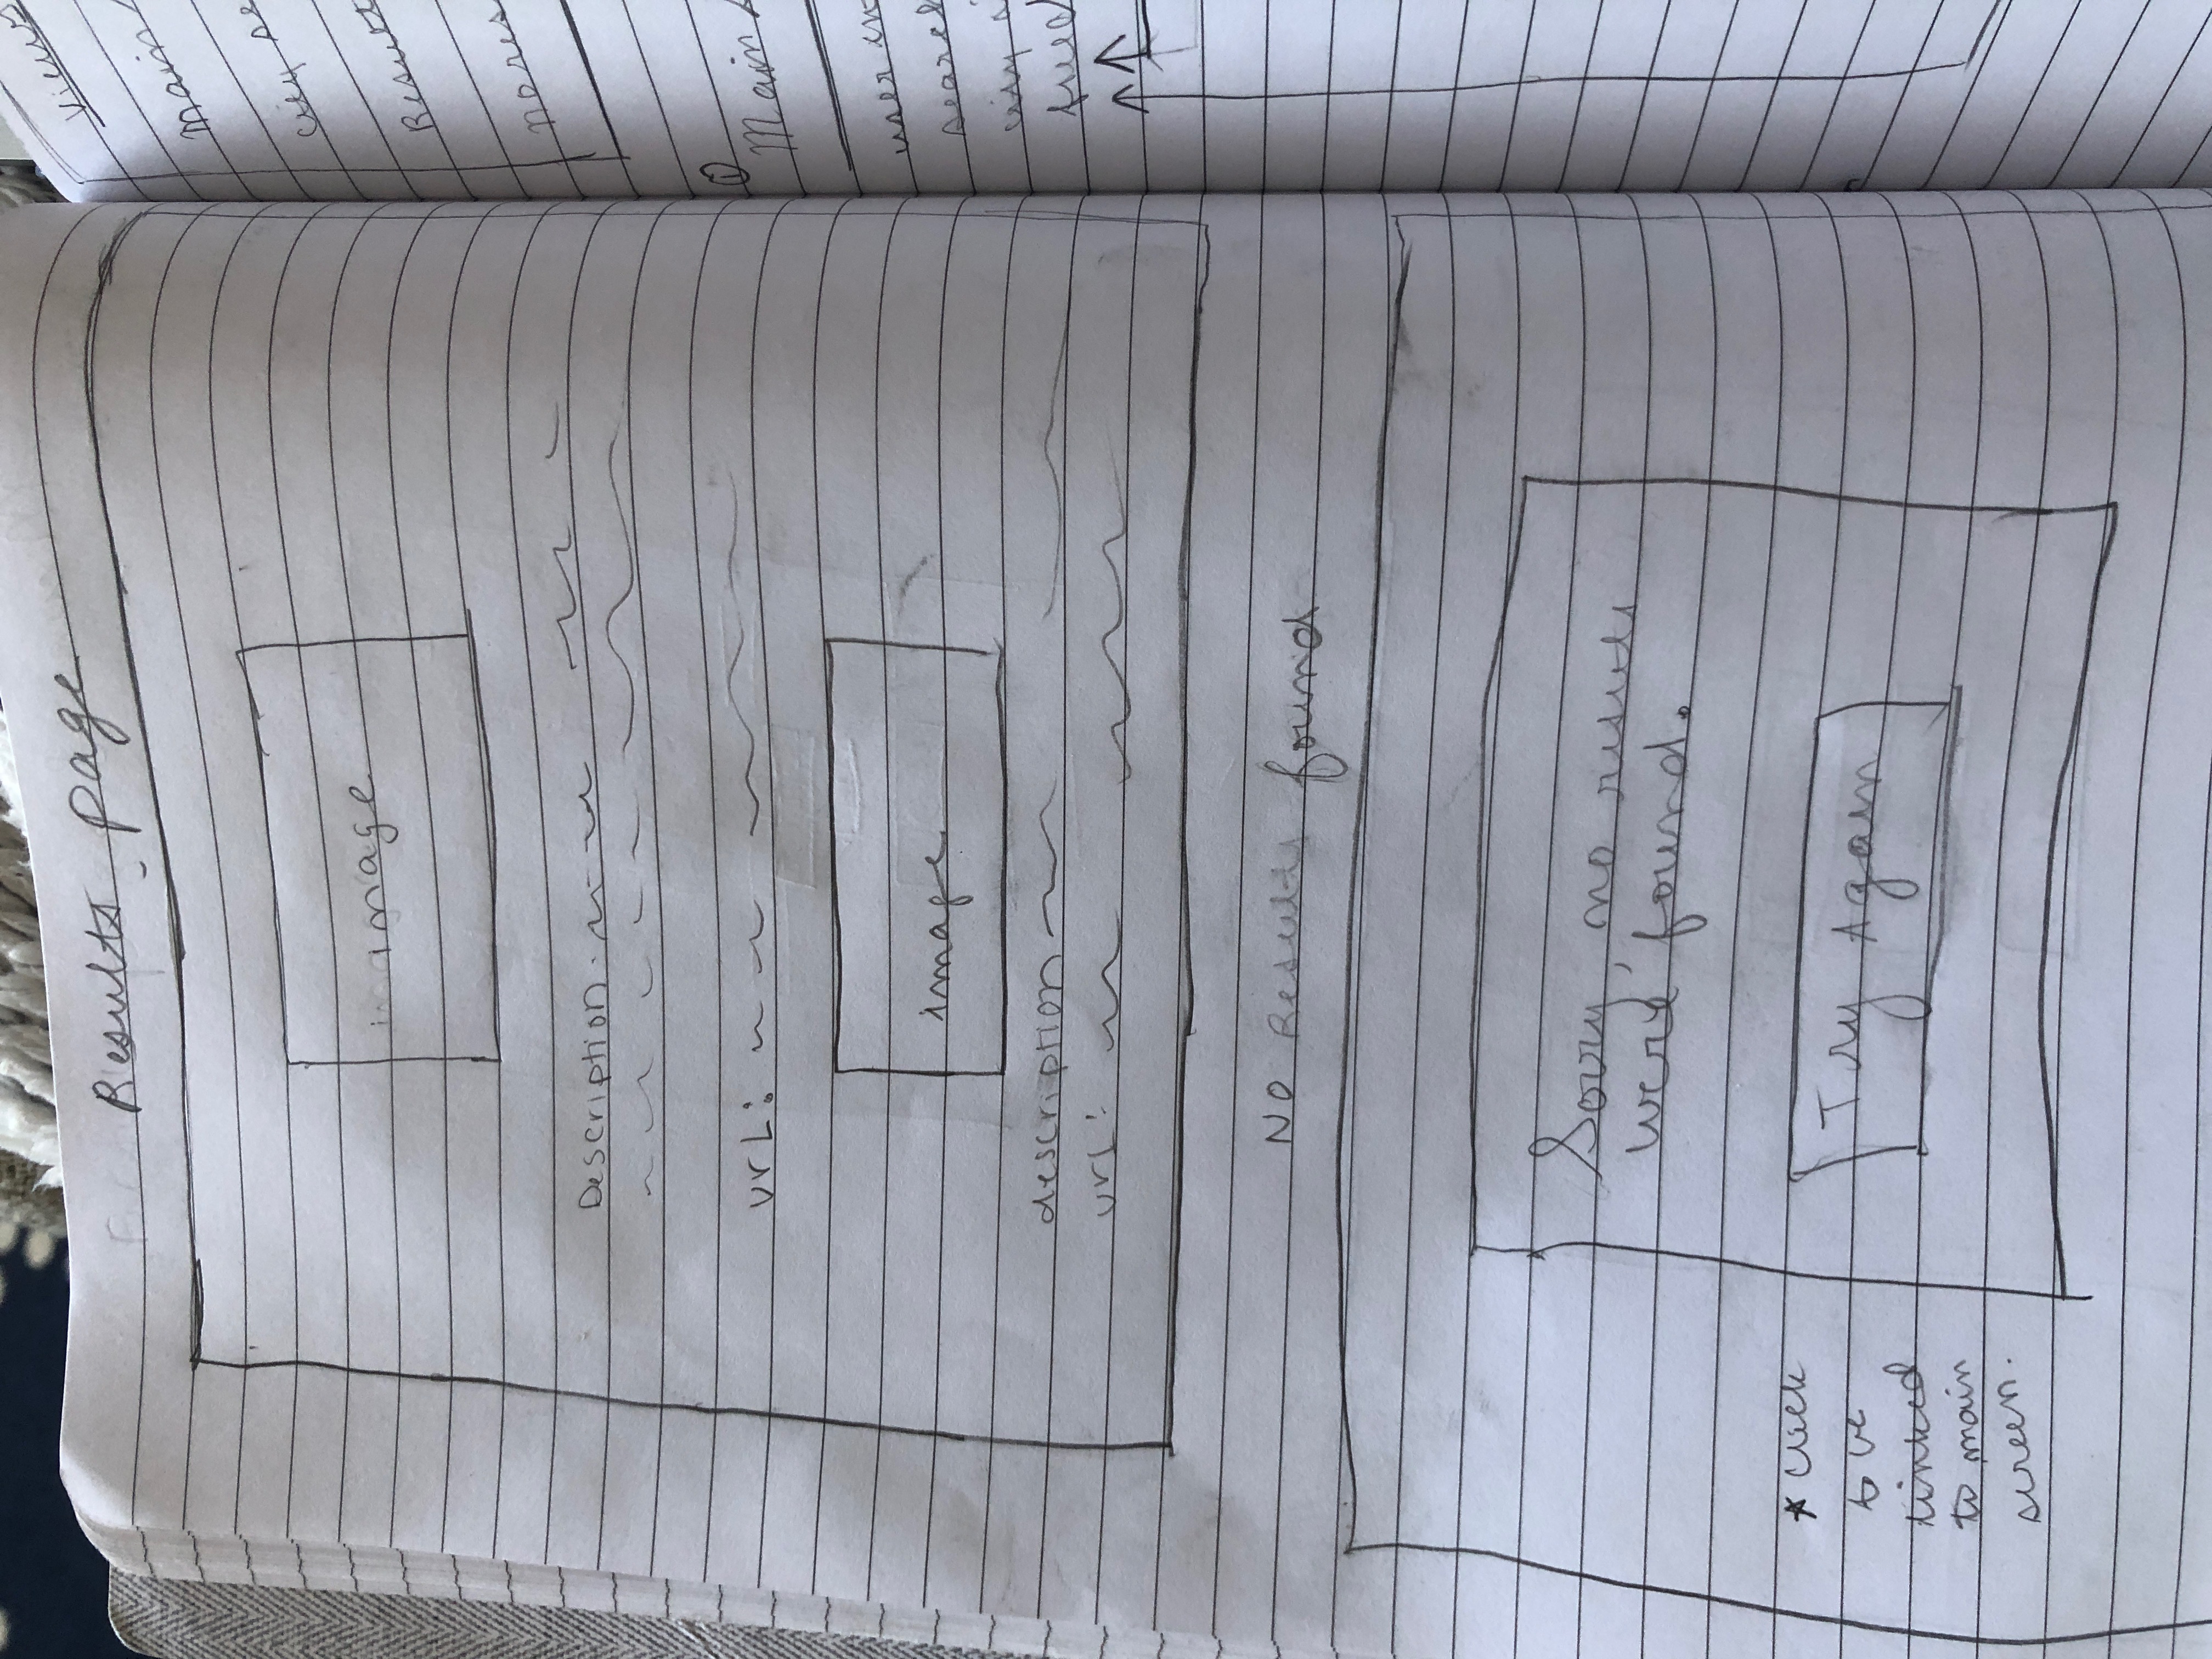 Results page
image
Description
url:
image
description
url:
No Results found
Sorry, no results
were found.
Try Again
* click
to be
linked
to main
screen.
Views
Main
city se
Result
no res
①
Main
user in
search
city